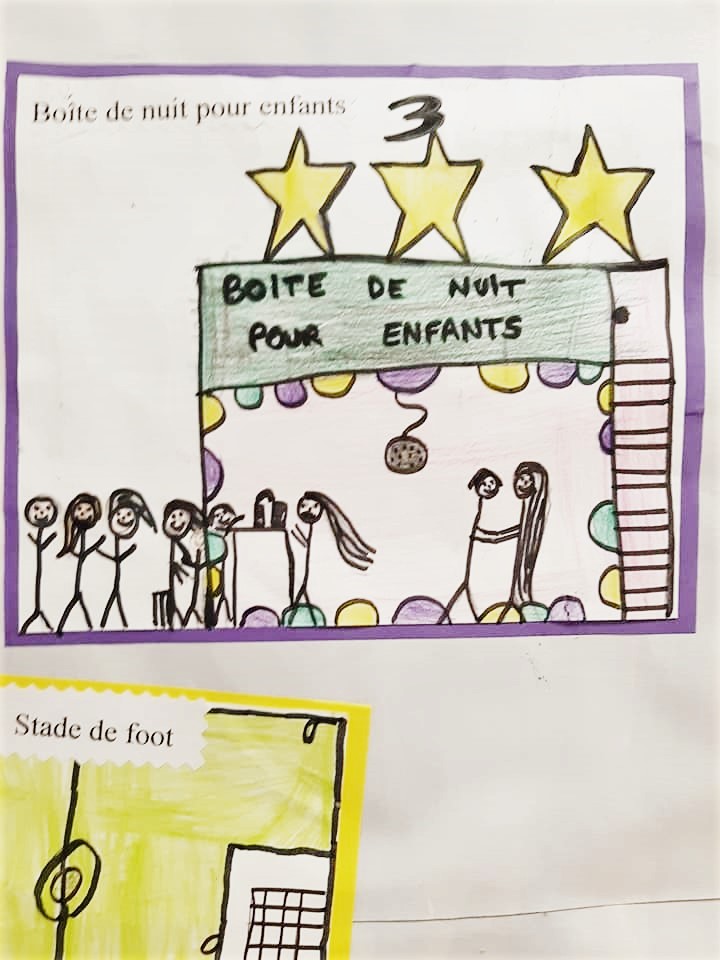 Boîte de nuit pour enfants
3
BOITE DE NUIT
POUR ENFANTS
Stade de foot